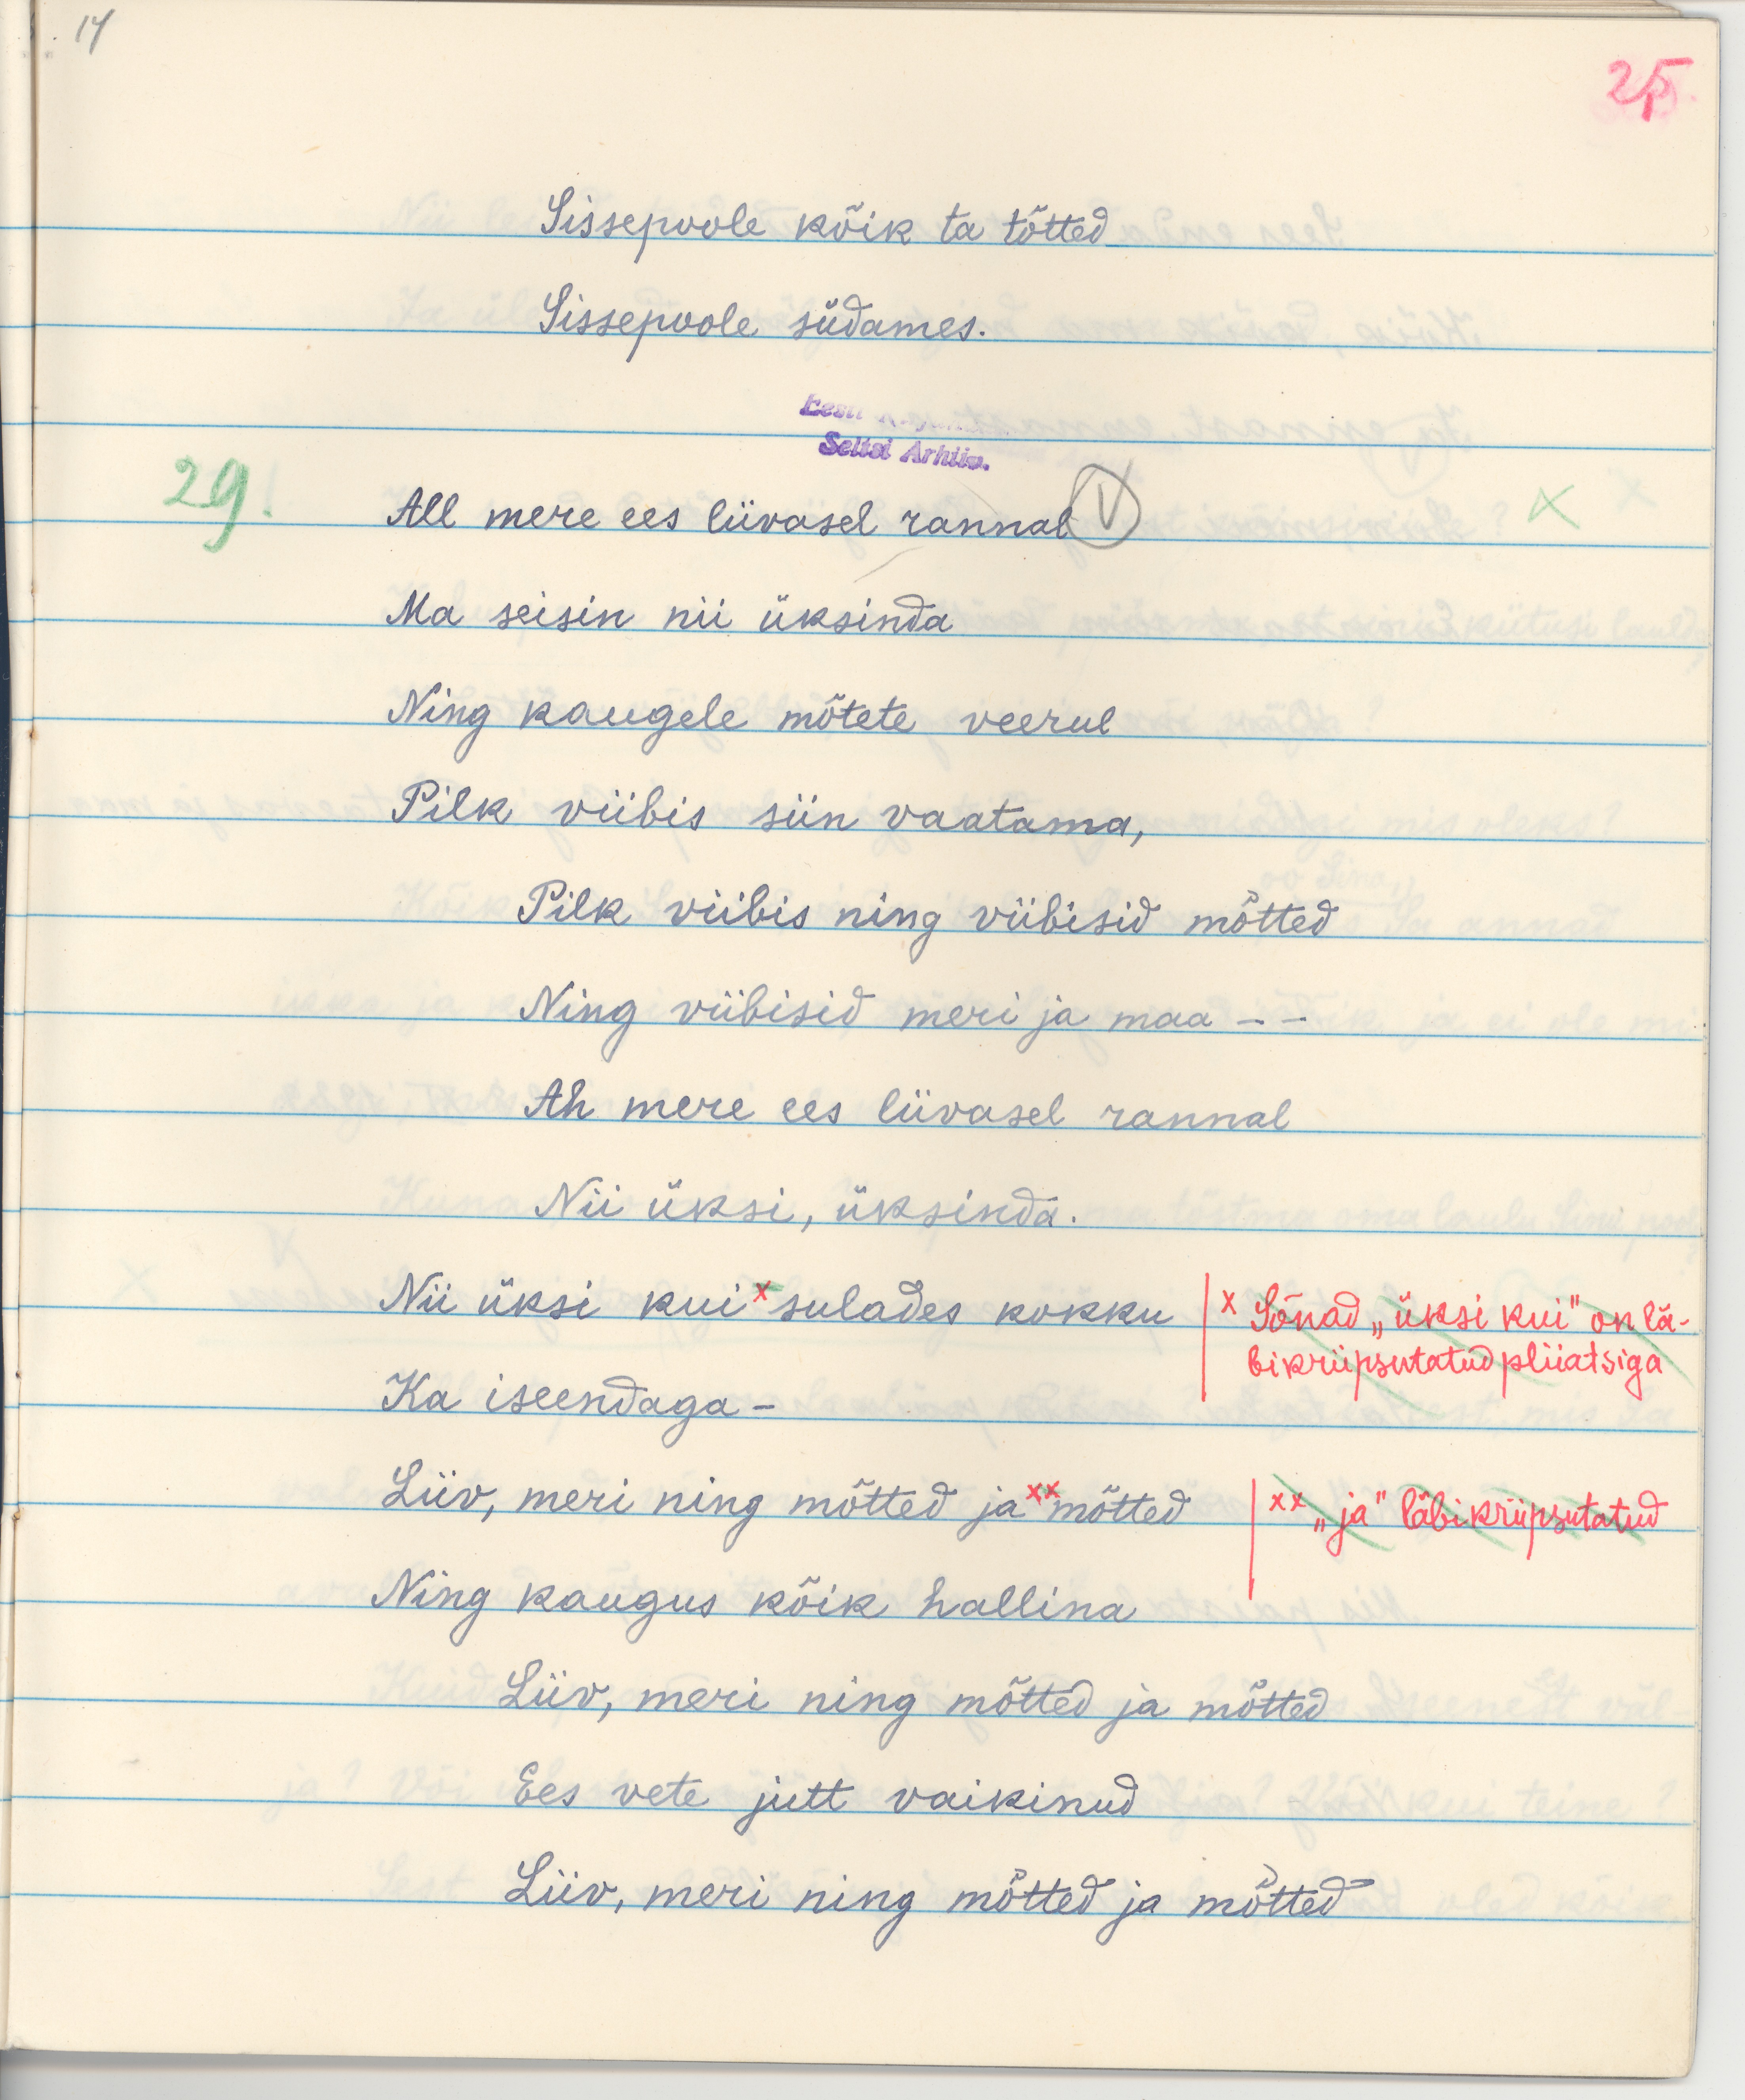 14
25.
Sissepoole kõik ta tõtted
Sissepoole südames.
Eesti
Seltsi Arhiiv.
29!
All mere ees liivasel rannal V
Ma seisin nii üksinda
Ning kaugele mõtete veerul
Pilk viibis siin vaatama,
Pilk viibis ning viibisid mõtted
Ning viibisid meri ja maa – –
Ah mere ees liivasel rannal
Nii üksi, üksinda.
Nii üksi kui x sulades kokku
x Sõnad „üksi kui" on lä-
bikriipsutatud pliiatsiga
Ka iseendaga –
Liiv, meri ning mõtted ja xx mõtted
xx „ja" läbikriipsutatud
Ning kaugus kõik hallina
Liiv, meri ning mõtted ja mõtted
Ees vete jutt vaikinud
Liiv, meri ning mõtted ja mõtted